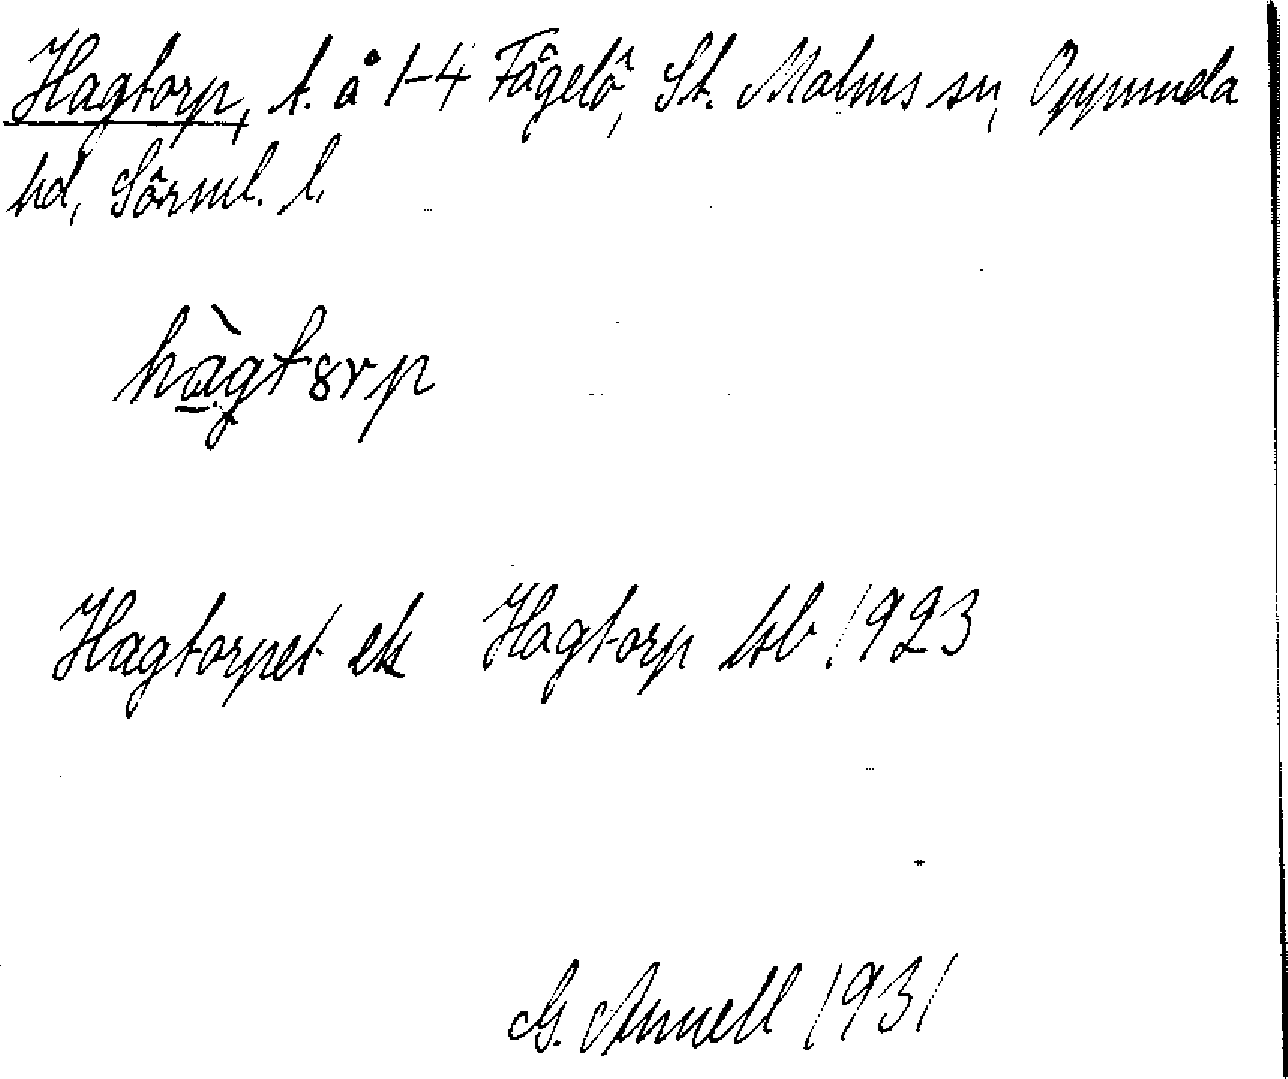 Hagtorp, t. å 1-4 Fågelö, St. Malms sn, Oppunda
hd, Sörml. l.
hàgtørp
Hagtorpet ek Hagtorp kb 1923
G. Annell 1931